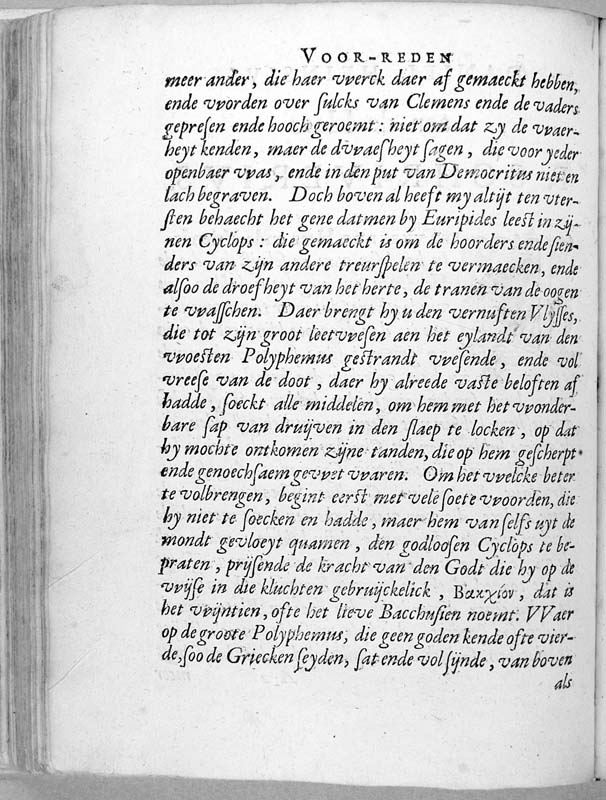 VOOR-REDEN
meer ander, die haer vverck daer af gemaeckt hebben,
ende vvorden over sulcks van Clemens ende de vaders
gepresen ende hooch geroemt: niet om dat zy de vvaer-
heyt kenden, maer de dvvaesheyt sagen, die voor yeder
openbaer vvas, ende in den put van Democritus niet en
lach begraven. Doch boven al heeft my altijt ten vter-
sten behaecht het gene datmen by Euripides leest in zij-
nen Cyclops: die gemaeckt is om de hoorders ende sien-
ders van zijn andere treurspelen te vermaecken, ende
alsoo de droefheyt van het herte, de tranen van de oogen
te vvasschen. Daer brengt hy u den vernuften Vlysses,
die tot zijn groot leetvvesen aen het eylandt van den
vvoesten Polyphemus gestrandt vvesende, ende vol
vreese van de doot, daer hy alreede vaste beloften af
hadde, soeckt alle middelen, om hem met het vvonder-
bare sap van druijven in den slaep te locken, op dat
hy mochte ontkomen zijne tanden, die op hem gescherpt
ende genoechsaem gevvet vvaren. Om het vvelcke beter
te volbrengen, begint eerst met vele soete vvoorden, die
hy niet te soecken en hadde, maer hem van selfs uyt de
mondt gevloeyt quamen, den godloosen Cyclops te be-
praten, prijsende de kracht van den Godt die hy op de
vvijse in die kluchten gebruijckelick, Βακχίον, dat is
het vvijntien, ofte het lieve Bacchusien noemt. VVaer
op de groote Polyphemus, die geen goden kende ofte vier-
de, soo de Griecken seyden, sat ende vol sijnde, van boven
als